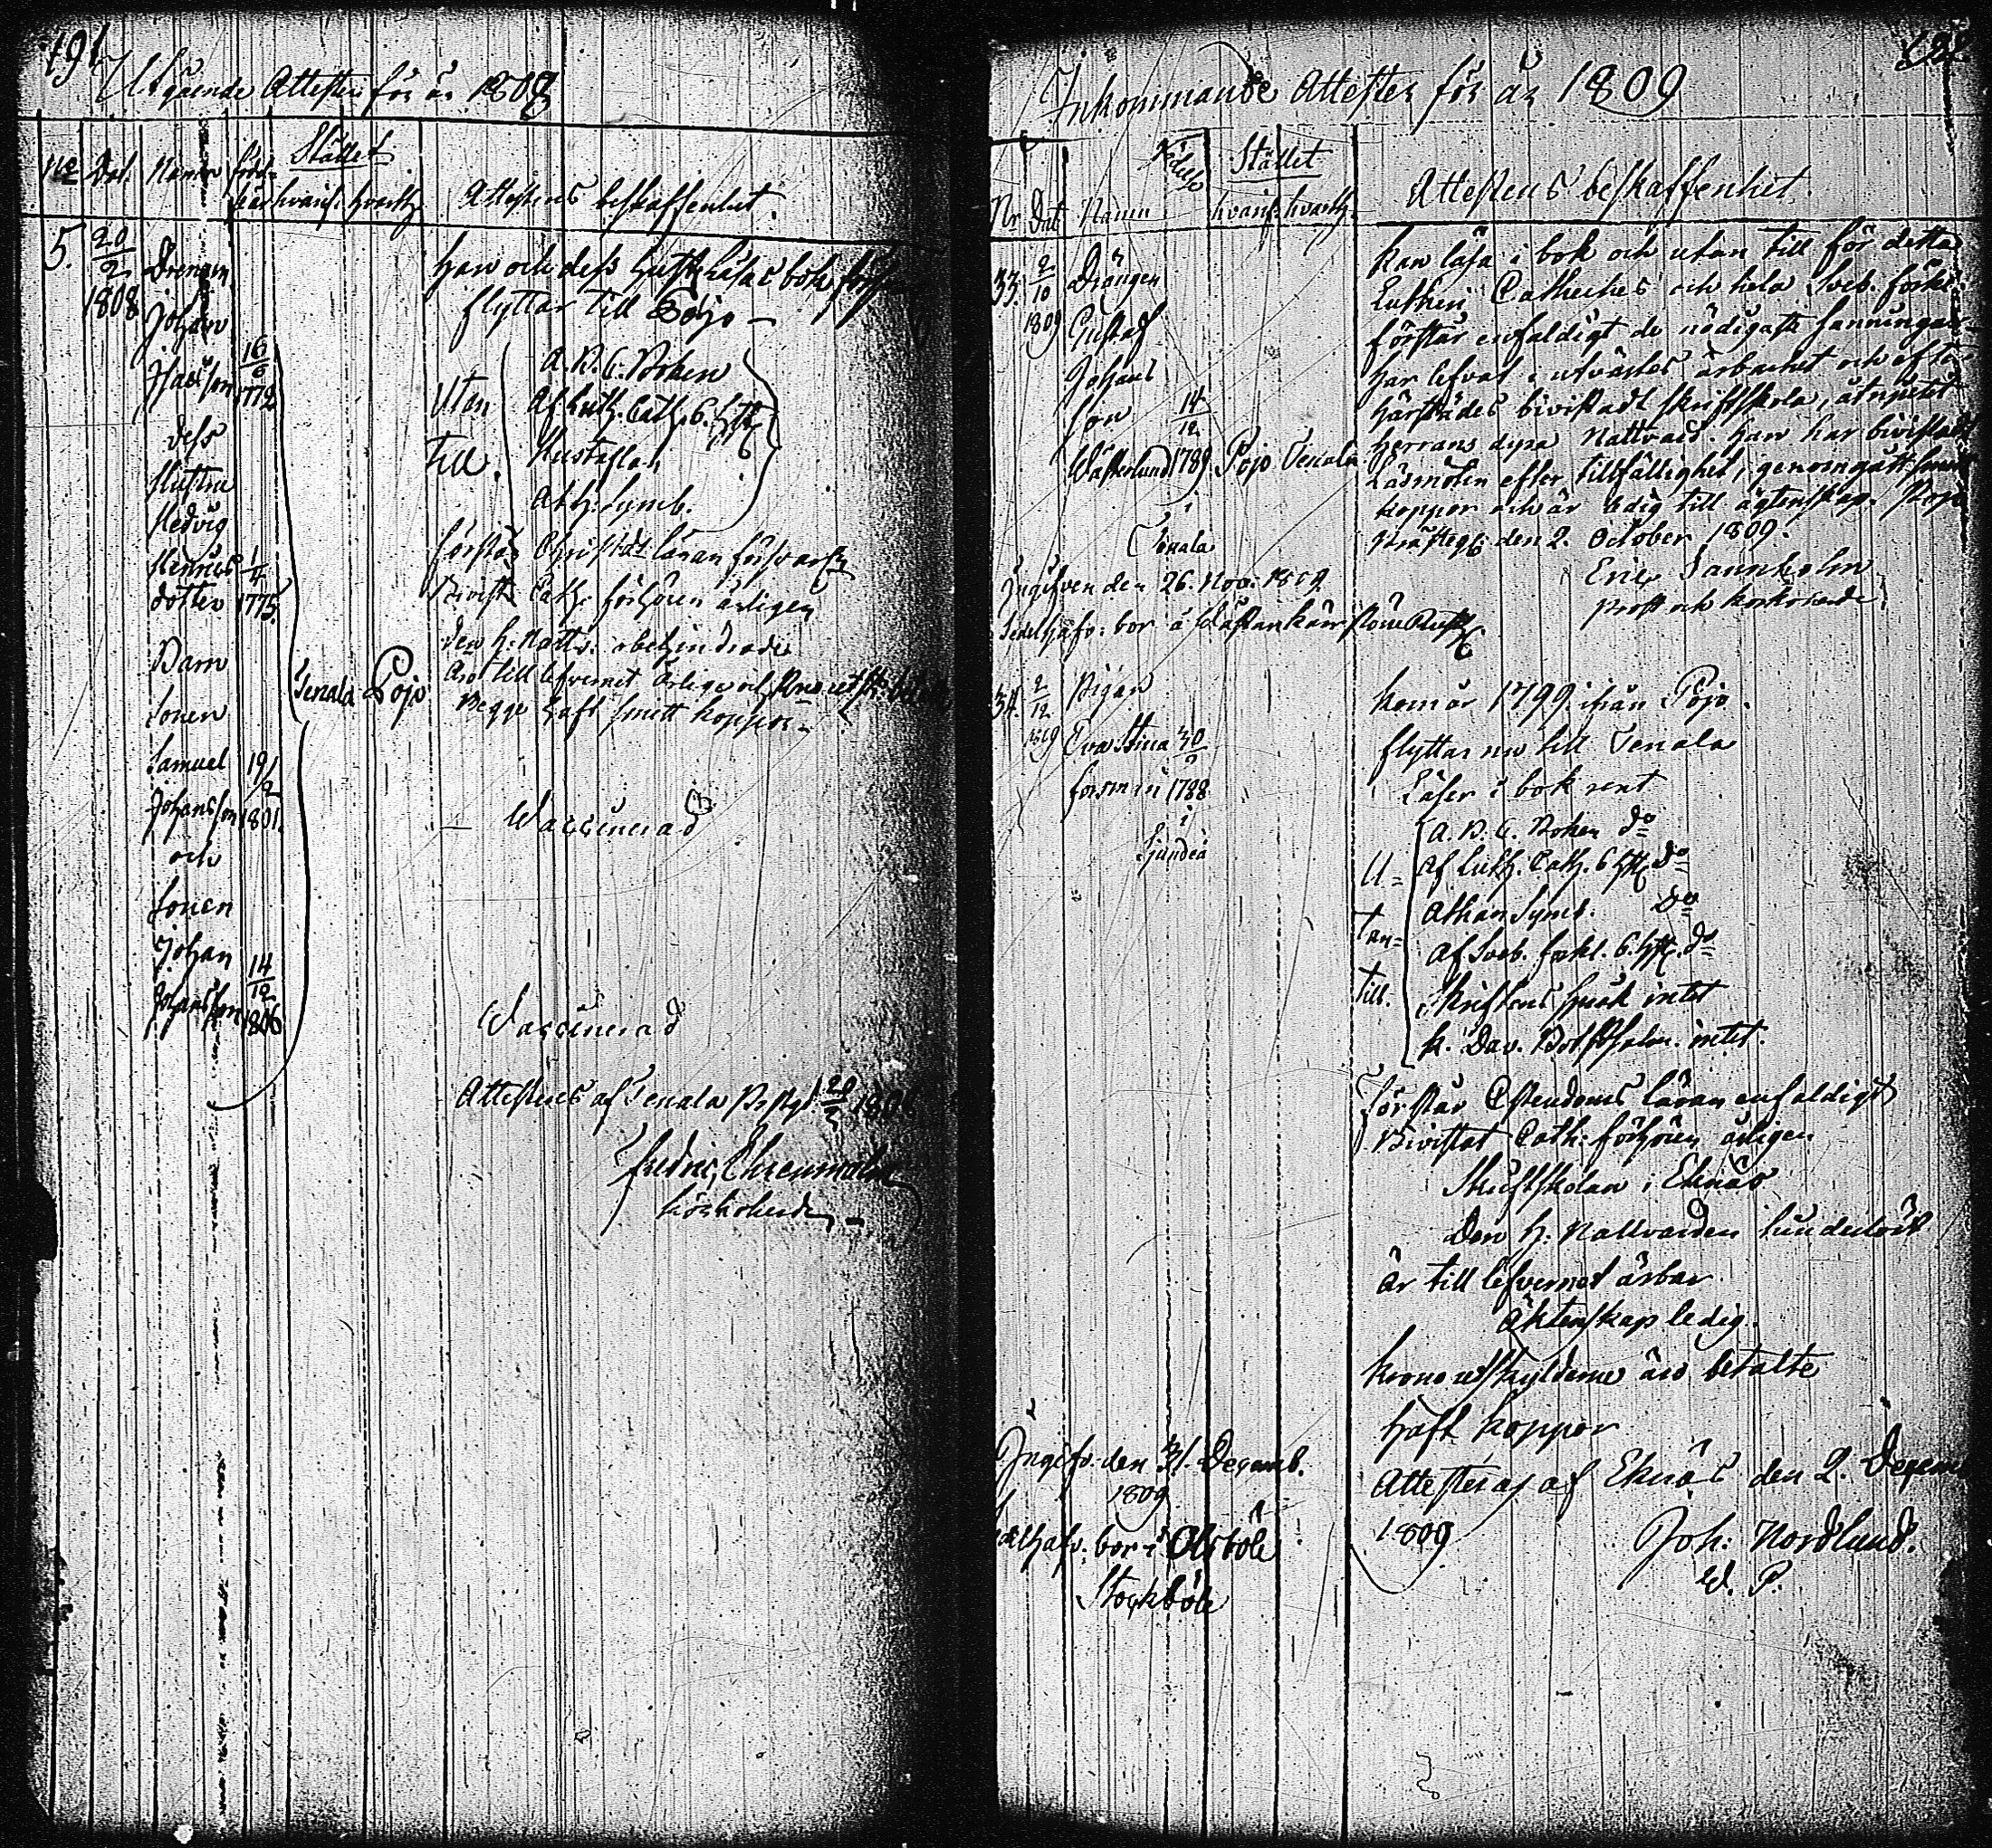 191
Utgående Attester för år 1808
Stället
No Dat. Namn född
når hvarif. hvarth.
Attestens beskaffenhet.
5. 20/2 1808
Drengen
Johan
Jacobsson 16/6 1772
dess
Hustru
Hedvig
Henrics
dotter 1/4 1775.
Barn
Sonen
Samuel 19/2
Johansson 1801.
och
Sonen
Johan 14/12
Johansson 1806
Tenala Pojo
Han och dess hustru läsa i bok
flyttar till Pojo
Utan
till.
A.B.C. Boken
Af Luth. Cath. 6. hstk
Hustaflan
Ath. Symb.
förstår Christd. läran försvarl.
Bivist. Cath. förhören årligen
den h. Nattv. obehindrade
Äro till lefvernet ärlige och
Begge haft smitt koppor
Vaccinerad
Vaccinerad
Attesteras af Tenala Prstgd 20/2 1808
Fredric Ehrenmalm
körkoherde
Inkommande Attester för år 1809
Stället
Nr. Dat Namn hvarif. hvarth.
Attestens beskaffenhet.
33. 2/10 1809
Drängen
Gustaf
Johans
son 14/12
Wästerlund 1789 Pojo Tenala
i
Tenala
Kan läsa i bok och utan till för detta
Lutheri Catheches och hela Sveb. förkl.
förstår enfaldigt de nödigaste sanningar
har lefvat i utvärtes ärbarhet och ofta
härstädes bivistadt skriftskola, åtnjutit
Herrans dyra Nattvard. Han har bivistadt
Läsmöten efter tillfällighet, genomgått
koppor och är ledig till ägtenskap. Pojo
Prästeg. den 2. October 1809.
Eric Sannholm
Prost och kyrkoherde
Ingifven den 26. Nov. 1809
34. 2/12 1809
Pigan
Eva Stina 30
Forsman 1788
i
Sjundeå
Kom år 1799 ifrån Pojo.
flyttar nu till Tenala
Läser i bok rent
U=
tan=
till.
A.B.C. Boken do
Af Luth. Cath. 6 hstk do
Athan Symb. do
Af Sveb. förkl. 6. hstk. do
Skriftens språk intet
K. Dav. Bot Psalm. intet.
Förstår Christendoms läran enfaldigt
Bivistat Cath. förhören årligen
Skriftskolan i Ekenäs
Den H. Nattvarden hinderlöst
är till lefvernet ärbar
Äktenskap ledig.
Krono utskylderne äro betalte
haft koppor
Attesteras af Ekenäs den 2. Decem
1809
Joh. Nordlund.
V. P.
Ingifv. den 31. Decemb.
1809
bor i Olsböle
Stockböle